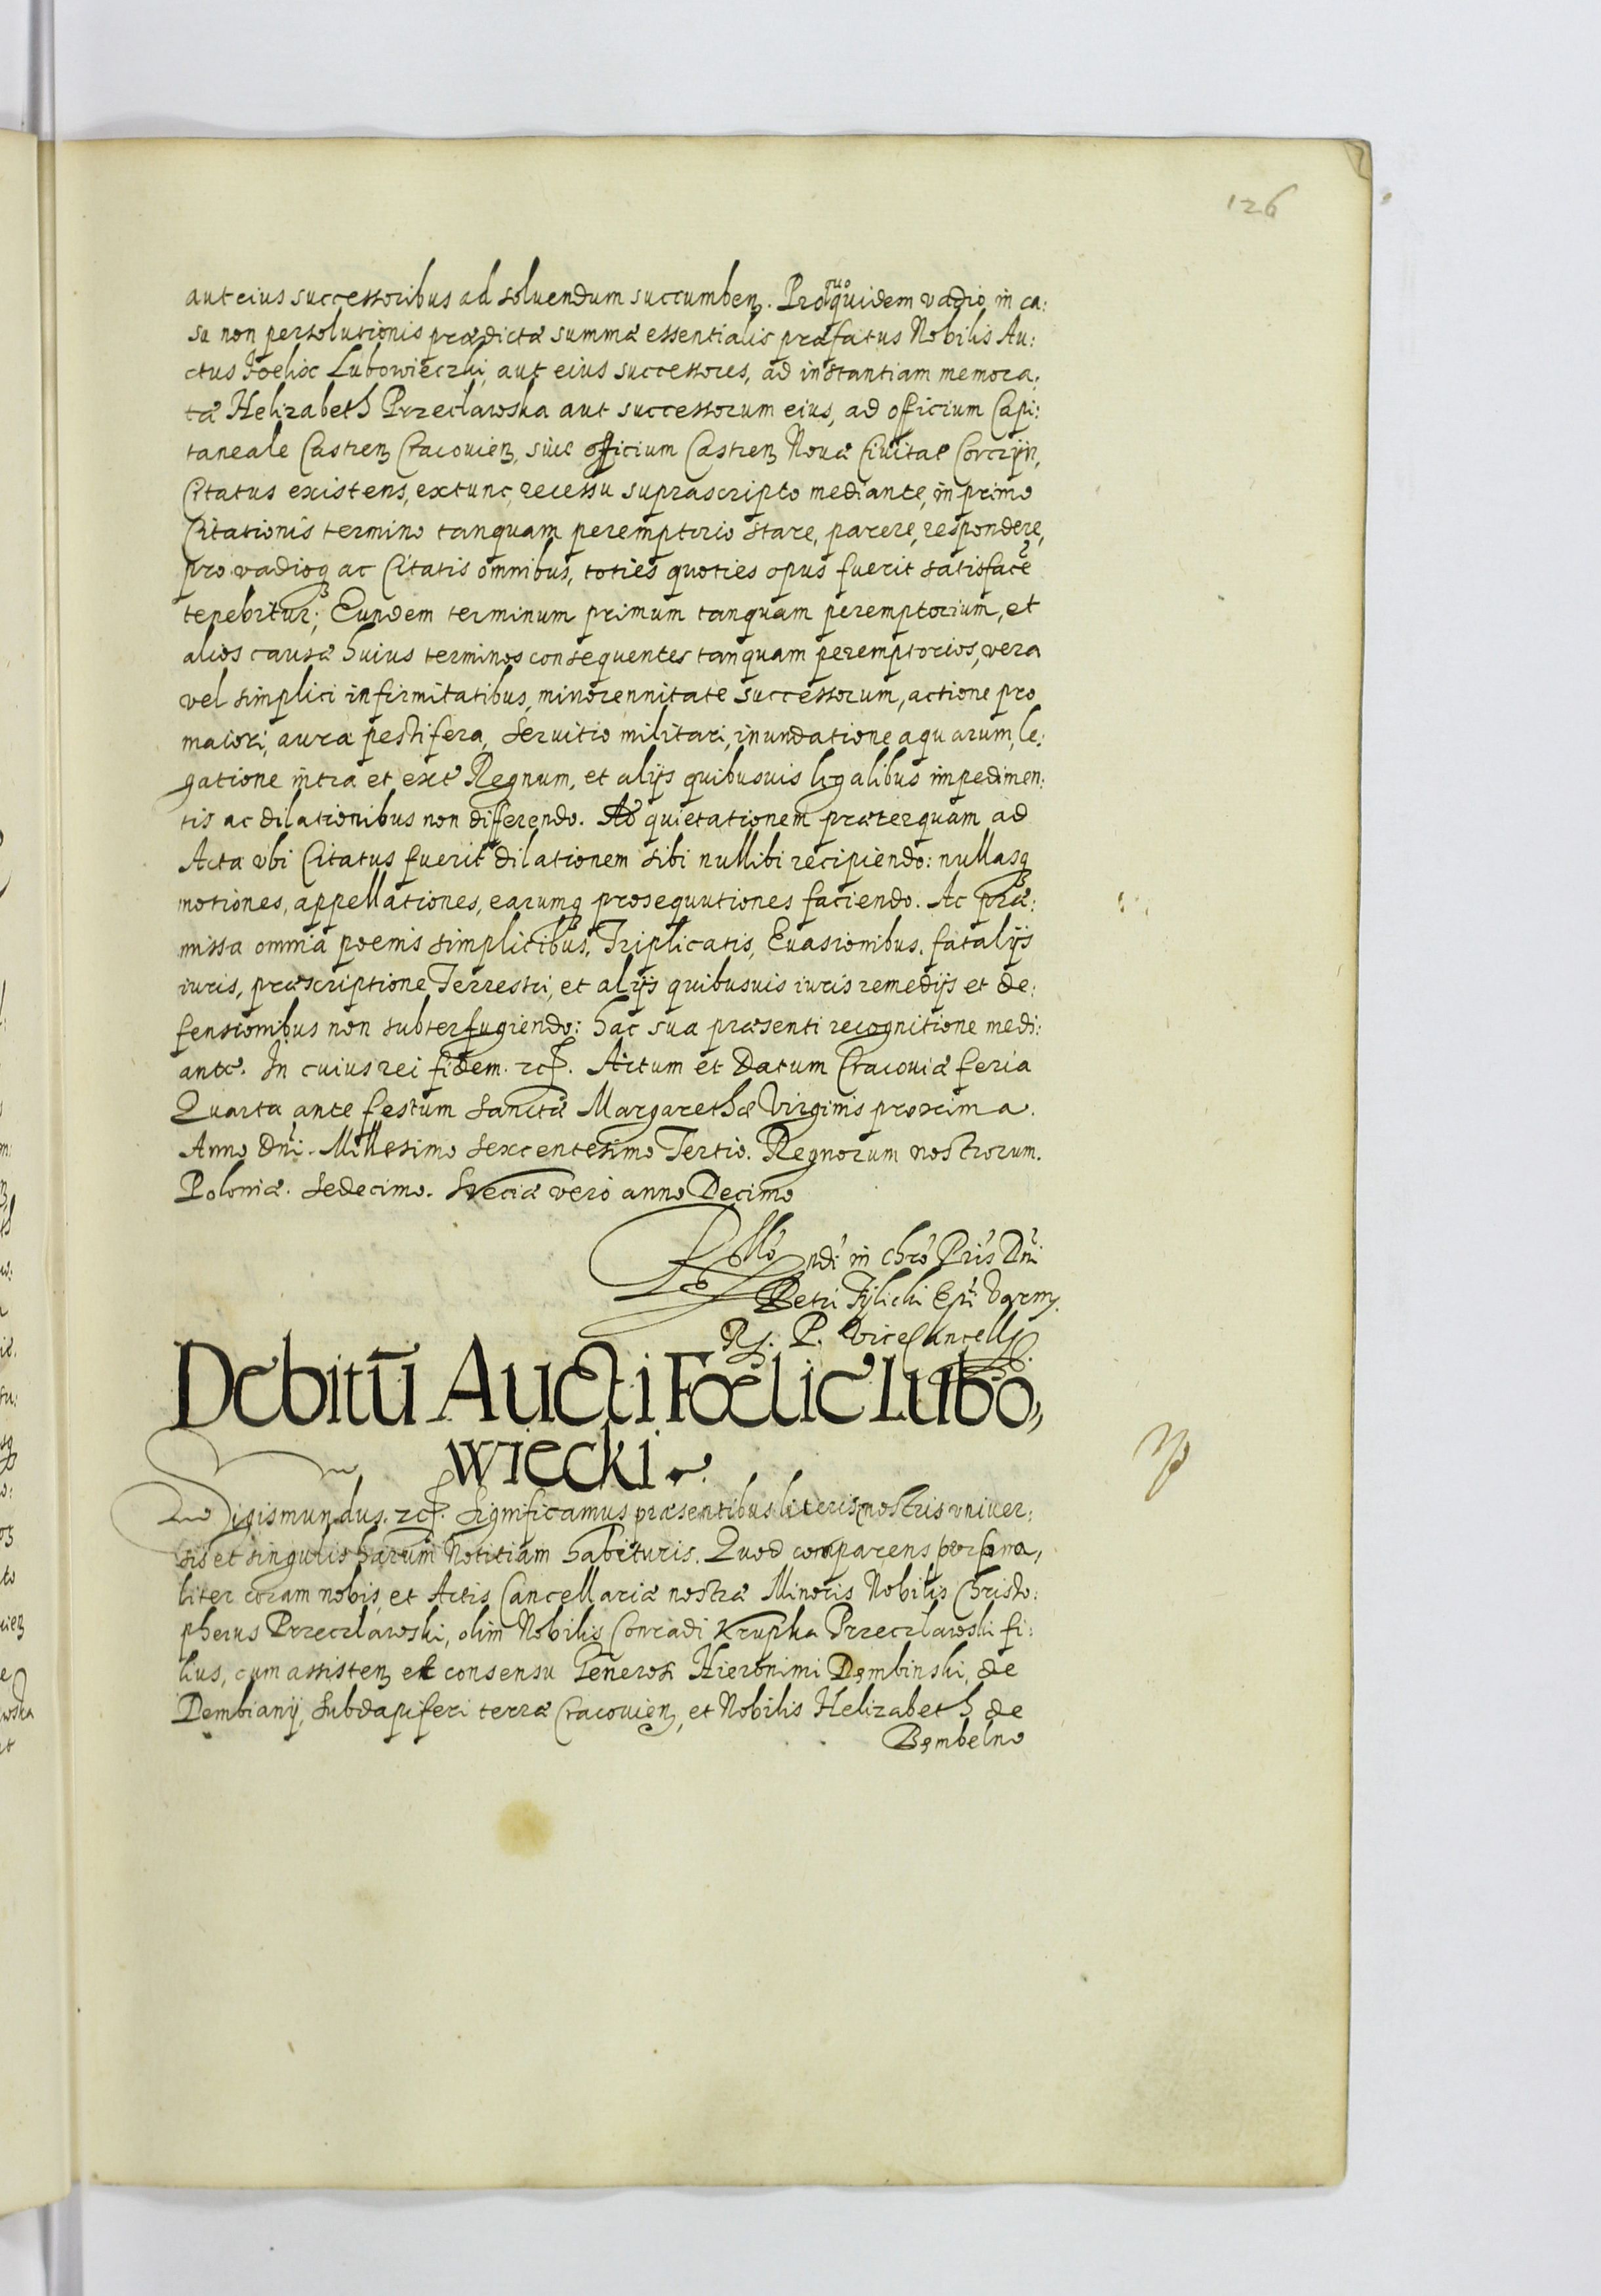 126
aut eius successoribus ad soluendum succumben. Pro quo quidem vadio, in ca:
su non persolutionis prædictæ summæ essentialis præfatus Nobilis Au:
ctus Foelix Lubowieczki, aut eius successores, ad instantiam memora:
tæ Helizabeth Przecławska aut successorum eius, ad officium Capi:
taneale Castren Cracouien, siue officium Castren Nouæ Ciuitat Corczÿn,
Citatus existens, extunc, recessu suprascripto mediante, in primo
Citationis termino tanquam peremptorio stare, parere, respondere,
pro vadioq ac Citatis omnibus, toties quoties opus fuerit satisface
tenebitur; Eundem terminum primum tanquam peremptorium, et
alios causæ huius terminos consequentes tanquam peremptorios, vera
vel simplici infirmitatibus, minorennitate successorum, actione pro
maiori, aura pestifera, seruitio militari, inundatione aquarum, le:
gatione intra et ext Regnum, et alijs quibusuis legalibus impedimen:
tis ac dilationibus non diferendo. Ad quietationem præterquam ad
Acta vbi Citatus fuerit dilationem sibi nullibi recipiendo: nullasq
motiones, appellationes, earumq prosequutiones faciendo. Ac præ:
missa omnia poenis simplicibus, Triplicatis, Euasionibus, fatalijs
iuris, præscriptione Terrestri, et alijs quibusuis iuris remedijs et de:
fensionibus non subterfugiendo: hac sua præsenti recognitione medi:
ante. In cuius rei fidem. etc. Actum et Datum Cracouiæ feria
Quarta ante festum sanctæ Margarethæ Virginis proxima.
Anno Dni. Millesimo sexcentesimo Tertio. Regnorum nostrorum.
Poloniæ. sedecimo. Sveciæ vero anno Decimo
ndi in Chro Pris Dni
Petri Tÿlicki Epi Varm.
R. P. Vicecancell
Debitū Aucti Fœlic Lubo,
wiecki
Sigismundus. etc. Significamus præsentibus literis nostris vniuer:
sis et singulis harum Notitiam habituris. Quod comparens persona,
liter coram nobis, et Actis Cancellariæ nostræ Minoris Nobilis Christo:
pherus Przeczlawski, olim Nobilis Conradi Krupka Przeczlawski fi:
lius, cum assisten et consensu Generosi Hieronimi Dembinski, de
Dembianÿ, subdapiferi terræ Cracouien, et Nobilis Helizabeth de
Bembelno